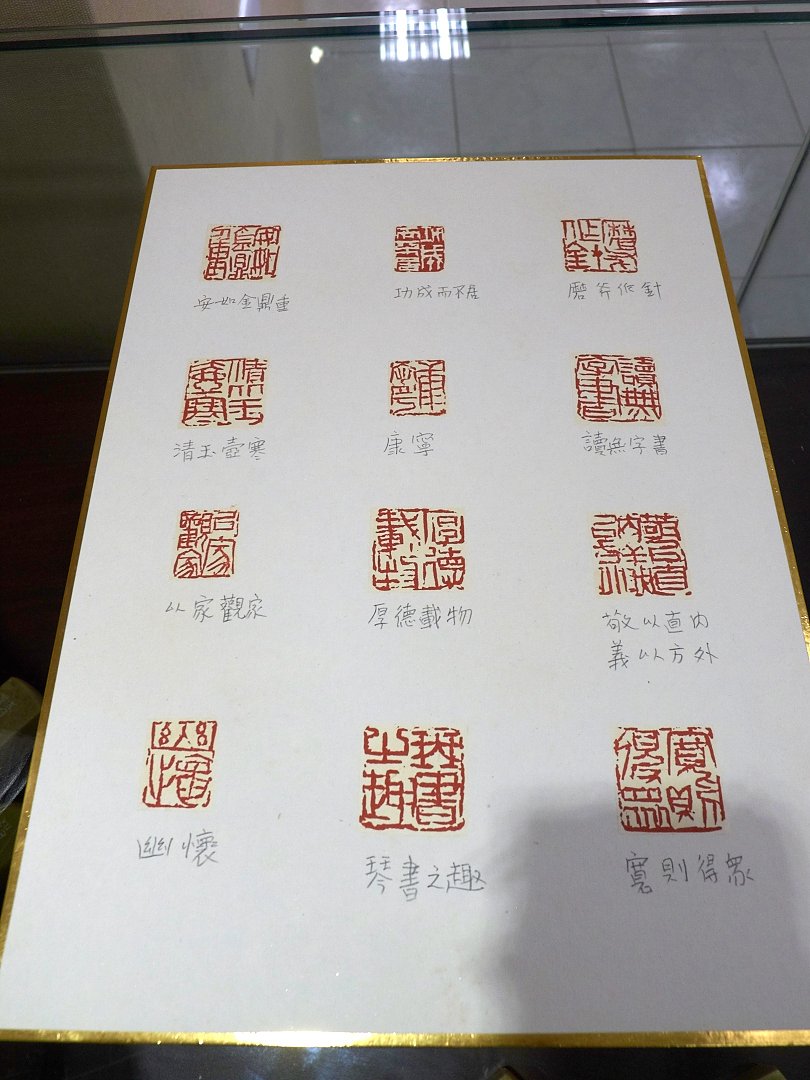 安如金鼎重
功成而不居
磨斧作針
清玉壺寒
康寧
讀無字書
以家觀家
厚德載物
敬以直內
義以方外
幽懷
琴書之趣
寬則得眾